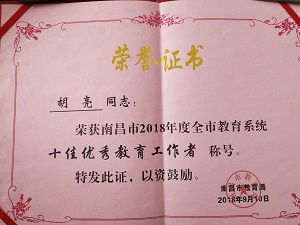 荣誉证书
胡亮 同志：
荣获南昌市2018年度全市教育系统
十佳优秀教育工作者 称号。
特发此证，以资鼓励。
南昌市教育局
2018年9月10日